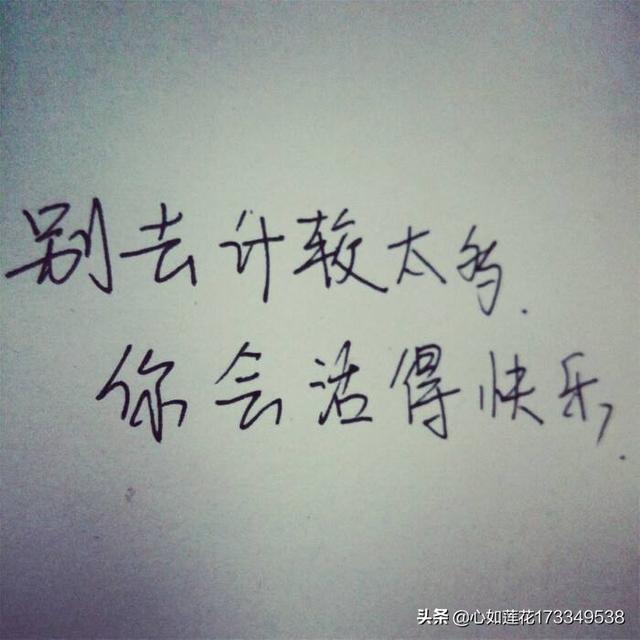 别去计较太多.
你会活得快乐,.
头条 @心如莲花173349538